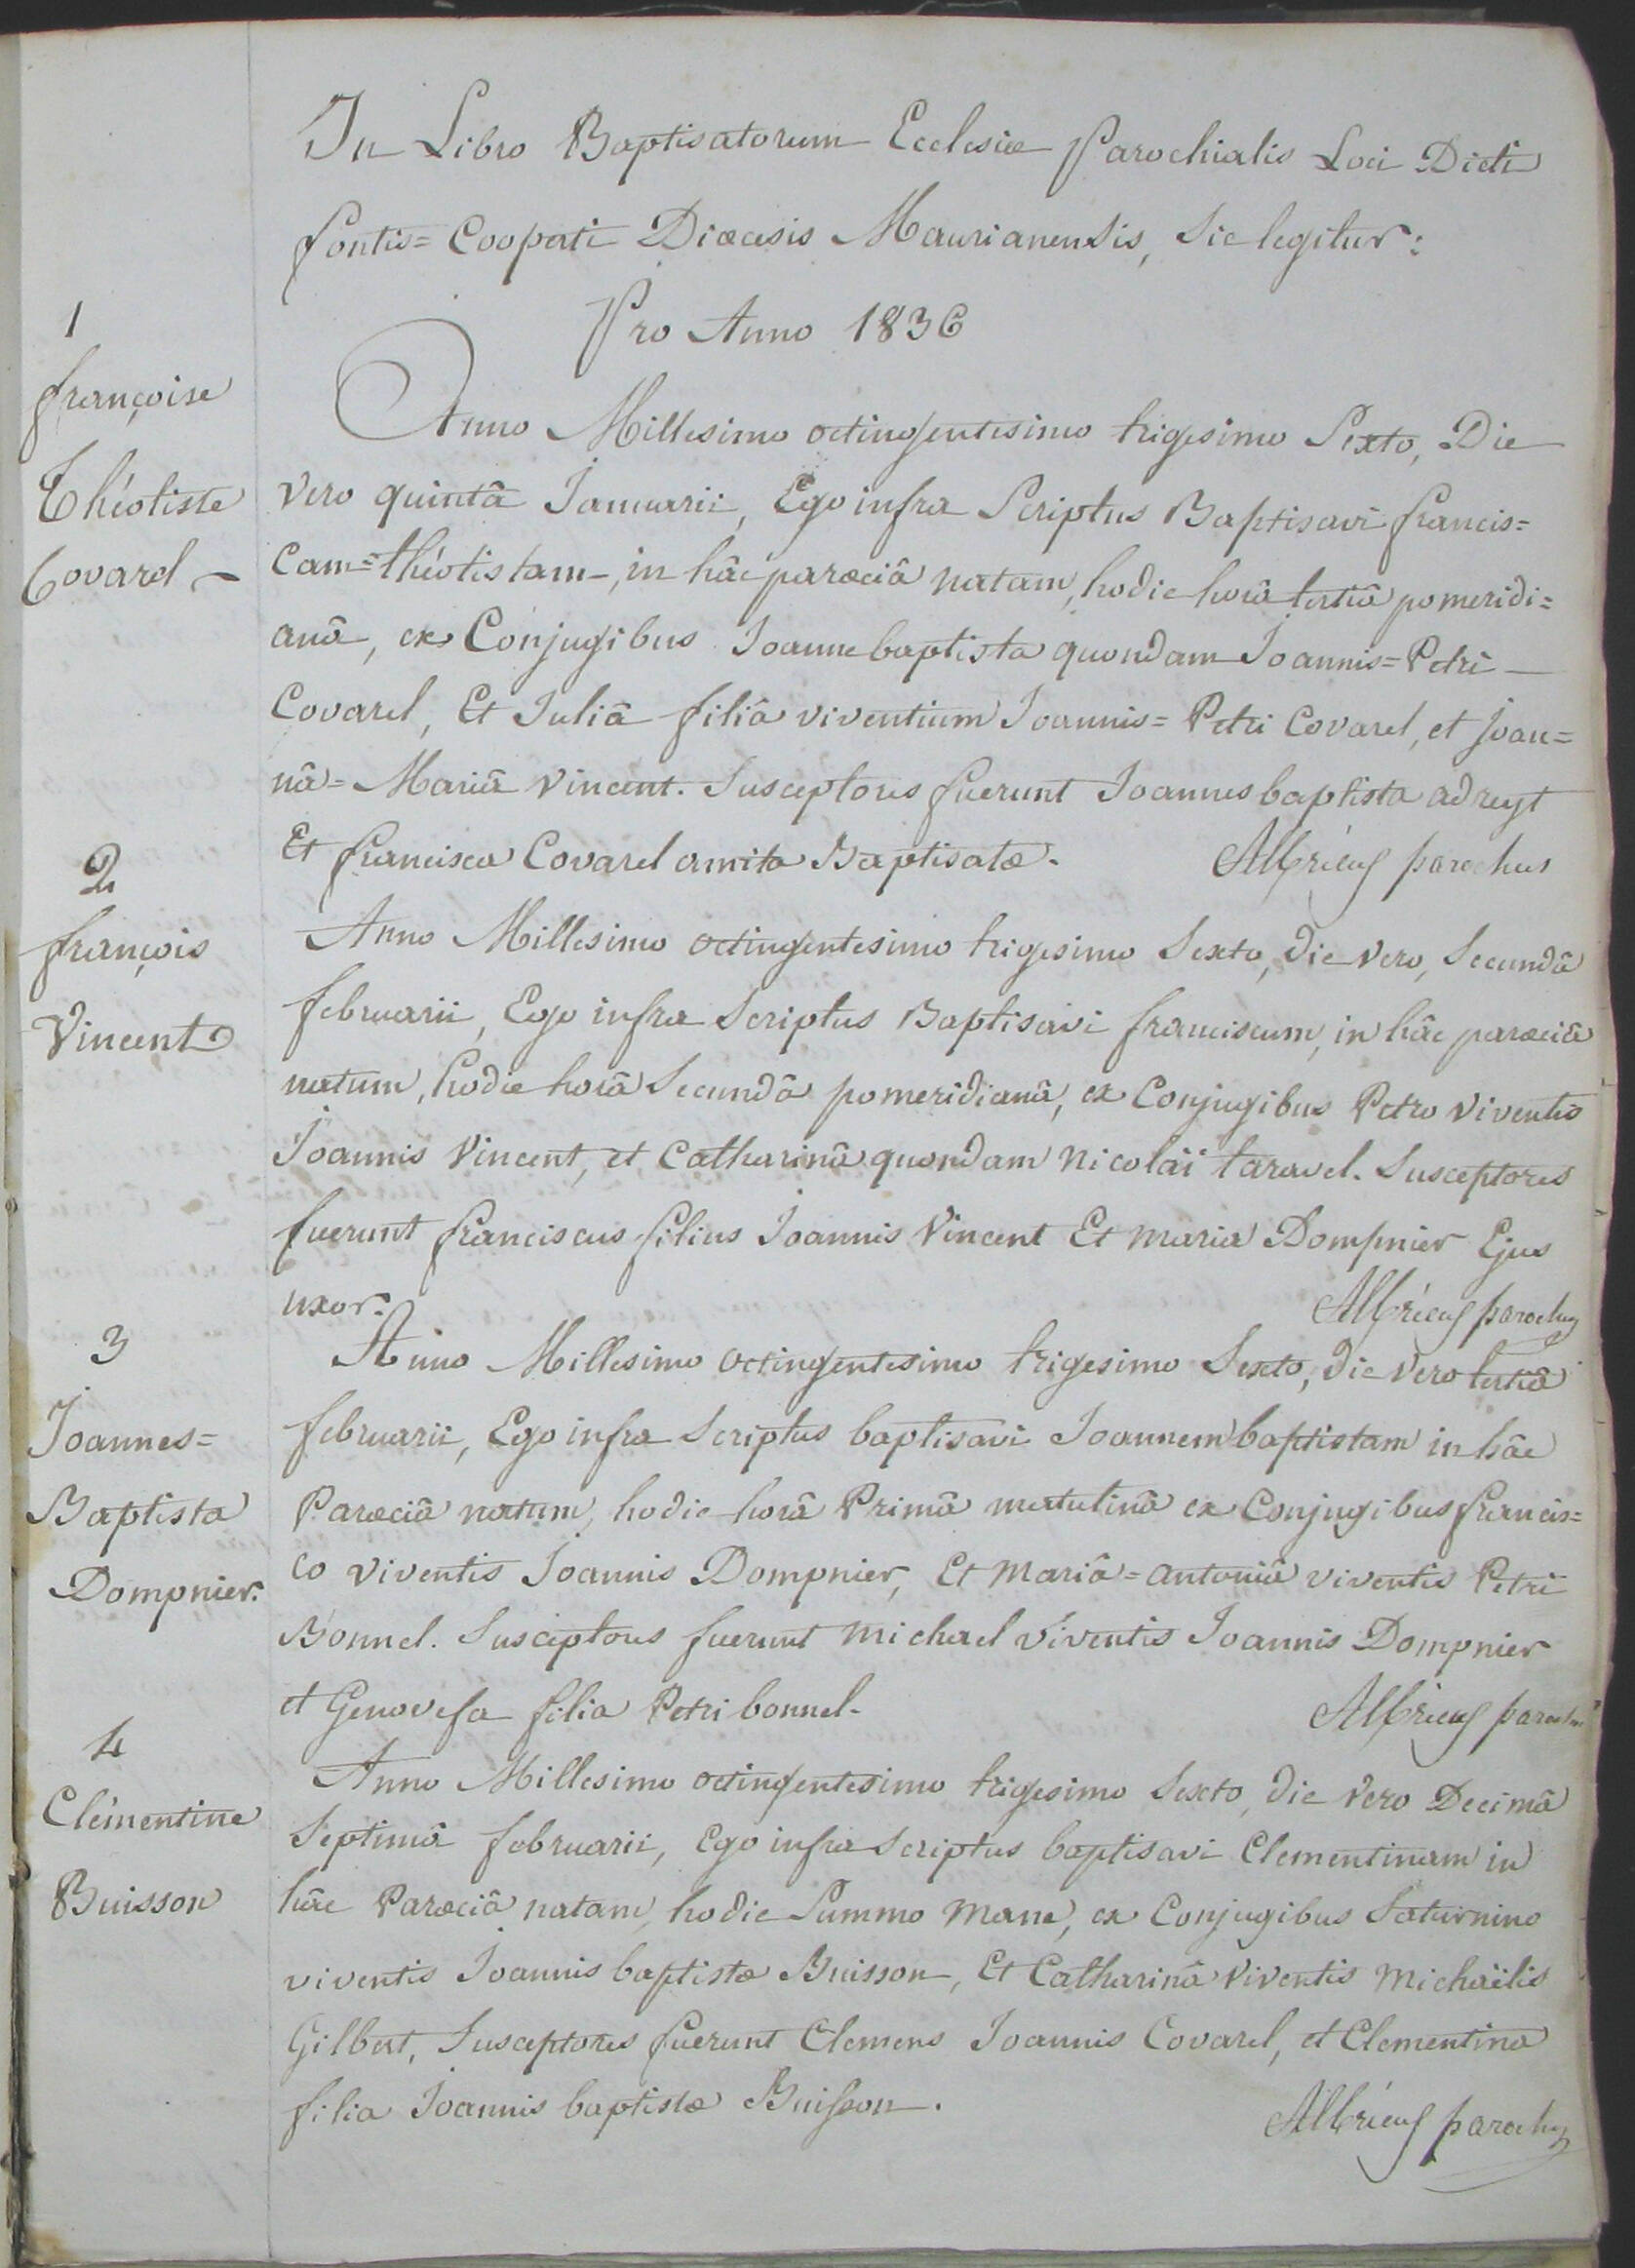 In Libro Baptisatorum Ecclesiæ Parochialis Loci Dicti
fontis= Cooperti Diœcesis Maurianensis, Sic legitur:
Pro Anno 1836
1
françoise
Théotiste
Covarel
Anno Millesimo octingentesimo trigesimo Sexto, Die
vero quintâ Januarii, Ego infra Scriptus Baptisavi francis=
Cam=théotistam, in hâc parœciâ natam, hodie horâ tertiâ pomeridi=
anâ, ex Conjugibus Joannebaptista quondam Joannis=Petri
Covarel, Et Juliâ filiâ viventium Joannis=Petri Covarel, et Joan=
nâ=Mariâ Vincent. Susceptores fuerunt Joannesbaptista adreyt
Et francisca Covarel amita Baptisatæ. Albrieux parochus
2
françois
Vincent
Anno Millesimo octingentesimo trigesimo Sexto, die vero, Secundâ
februarii, Ego infra Scriptus Baptisavi franciscum, in hâc parœciâ
natum, hodie horâ Secundâ pomeridianâ, ex Conjugibus Petro viventis
Joannis Vincent, et Catharinâ quondam Nicolaï taravel. Susceptores
fuerunt franciscus filius Joannis Vincent Et Maria Dompnier Ejus
uxor. Albrieux parochus
3
Joannes=
Baptista
Dompnier.
Anno Millesimo octingentesimo trigesimo Sexto, die vero tertiâ
februarii, Ego infra Scriptus baptisavi Joannembaptistam in hâc
Parœciâ natum, hodie horâ Primâ matutinâ ex Conjugibus francis=
co viventis Joannis Dompnier, Et Mariâ=antoniâ viventis Petri
Bonnel. Susceptores fuerunt Michael viventis Joannis Dompnier
et Genovefa filia Petri bonnel. Albrieux parochus
4
Clémentine
Buisson
Anno Millesimo octingentesimo trigesimo Sexto, die vero Decimâ
Septimâ februarii, Ego infra Scriptus baptisavi Clementinam in
hâc Parœciâ natam, hodie Summo Mane, ex Conjugibus Saturnino
viventis Joannis baptistæ Buisson, Et Catharinâ viventis Michaëlis
Gilbert, Susceptores fuerunt Clemens Joannis Covarel, et Clementina
filia Joannis baptistæ Buisson. Albrieux parochus